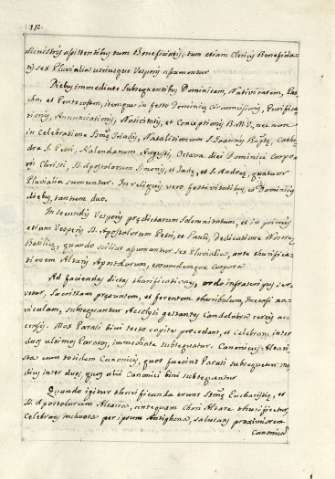 112.
ministris assistentibus tum Beneficiatis, tum etiam Clericis Beneficia-
tis sex Pluvialia utriusque Vesperis assumuntur
Diebus immediate subsequentibus Dominicam, Nativitatem, Pas-
cha, et Pentecostem, itemque in festo Dominicæ Circumcisionis, Purifica-
tionis, Annunciationis, Nativitatis, et Conceptionis B.M.V. nec non
in Celebratione Smæ Triadis, Natalitiorum S. Joannis Baptæ, Cathe-
dræ S. Petri, Kalendarum Augusti, Octava diei Dominici Corpo-
ris Christi, SS. Apostolorum Simonis, et Judæ, et S. Andreæ, quatuor
Pluvialia sumuntur. In reliquis vero festivitatibus, et Dominicis
diebus, tantum duo.
In secundis Vesperis prædictarum Solemnitatum, et in primis
etiam Vesperis SS. Apostolorum Petri, et Pauli, Dedicationis Nostræ
Basilicæ, quando scilicet assumuntur sex Pluvialia, ante thurifica-
tionem Altaris Apostolorum, eorumdemque Corpora
Ad faciendas dictas thurificationes, ordo infrascriptus ser-
vetur, Sacristam præeuntem, et ferentem thuribulum, incensi na-
viculam, subsequantur Acolythi gestantes Candelabra cereis ac-
censis. Mox Parati bini tecto capite procedant, et Celebrans inter
duos ultimos Paratos, immediate subsequatur. Canonicus Altari-
sta cum totidem Canonicis, quot fuerint Parati subsequetur me-
dius inter duos, quos alii Canonici bini subsequantur
Quando igitur thurificanda erunt Smæ Eucharistiæ, et
SS. Apostolorum Altaria, antequam Chori Altare thurificetur,
Celebrans inchoata per ipsum Antiphona, salutatis proximioribus
Canonicis